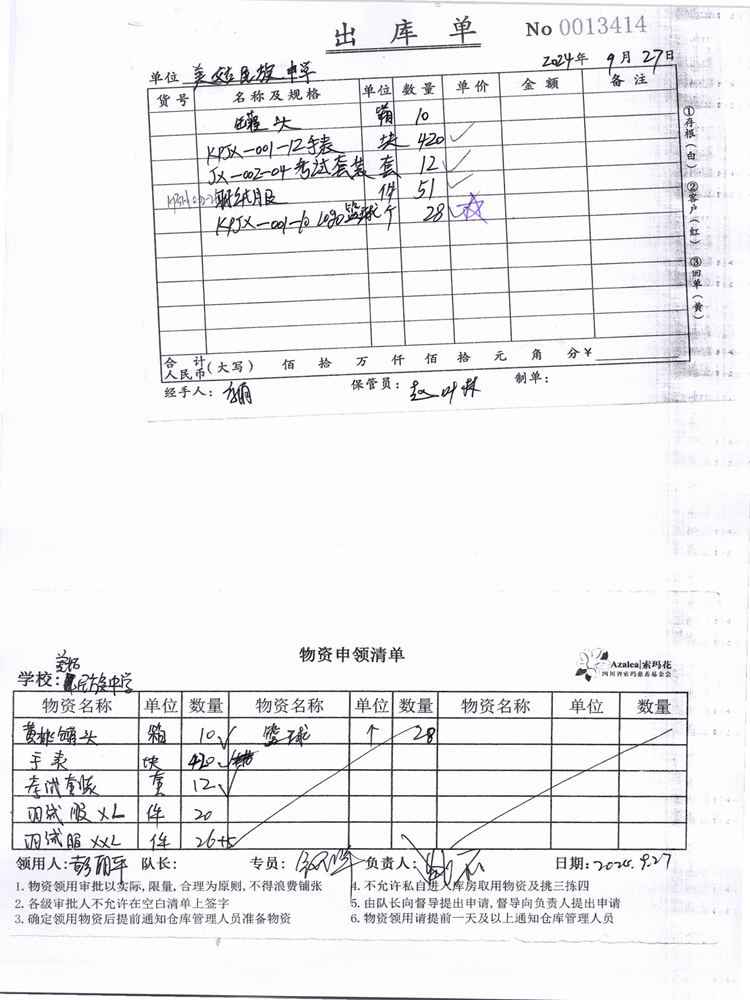 出库单 No 0013414
单位 民族中学 2024年9月27日
货号 名称及规格 单位 数量 单价 金额 备注
罐头 箱 10
KPJX-001-12手表 块 420
JX-002-04考试套装 套 12
件 51
KPJX-001-10 Logo篮球 个 28
合计人民币(大写) 佰 拾 万 仟 佰 拾 元 角 分 ¥
经手人: 保管员: 制单:
①存根(白) ②客户(红) ③回单(黄)
物资申领清单
Azalea 索玛花
四川省索玛慈善基金会
学校: 民族中学
物资名称 单位 数量 物资名称 单位 数量 物资名称 单位 数量
黄桃罐头 箱 10 篮球 个 28
手表 块 420
考试套装 套 12
测试服 XL 件 20
测试服 XXL 件 26+5
领用人: 队长: 专员: 负责人: 日期: 2024.9.27
1. 物资领用审批以实际,限量,合理为原则,不得浪费铺张 4. 不允许私自进入库房取用物资及挑三拣四
2. 各级审批人不允许在空白清单上签字 5. 由队长向督导提出申请,督导向负责人提出申请
3. 确定领用物资后提前通知仓库管理人员准备物资 6. 物资领用请提前一天及以上通知仓库管理人员